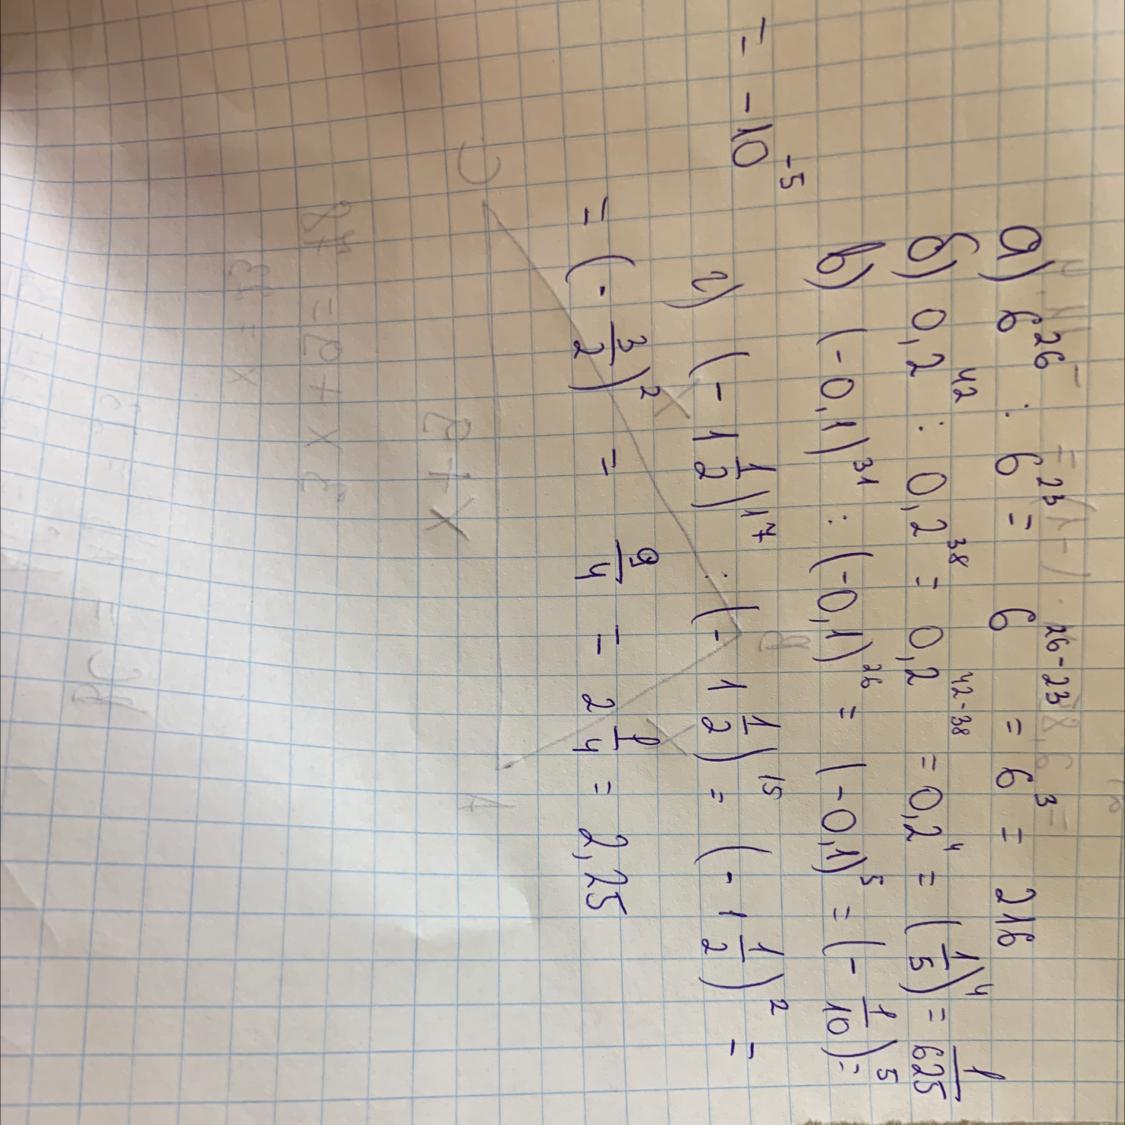 а) 6²⁶ : 6²³ = 6²⁶⁻²³ = 6³ = 216
б) 0,2⁴² : 0,2³⁸ = 0,2⁴²⁻³⁸ = 0,2⁴ = (1/5)⁴ = 1/625
в) (-0,1)³¹ : (-0,1)²⁶ = (-0,1)⁵ = (-1/10)⁵ =
= -10⁻⁵
г) (-1 1/2)¹⁷ : (-1 1/2)¹⁵ = (-1 1/2)² =
= (-3/2)² = 9/4 = 2 1/4 = 2,25
C
B
A
x+2